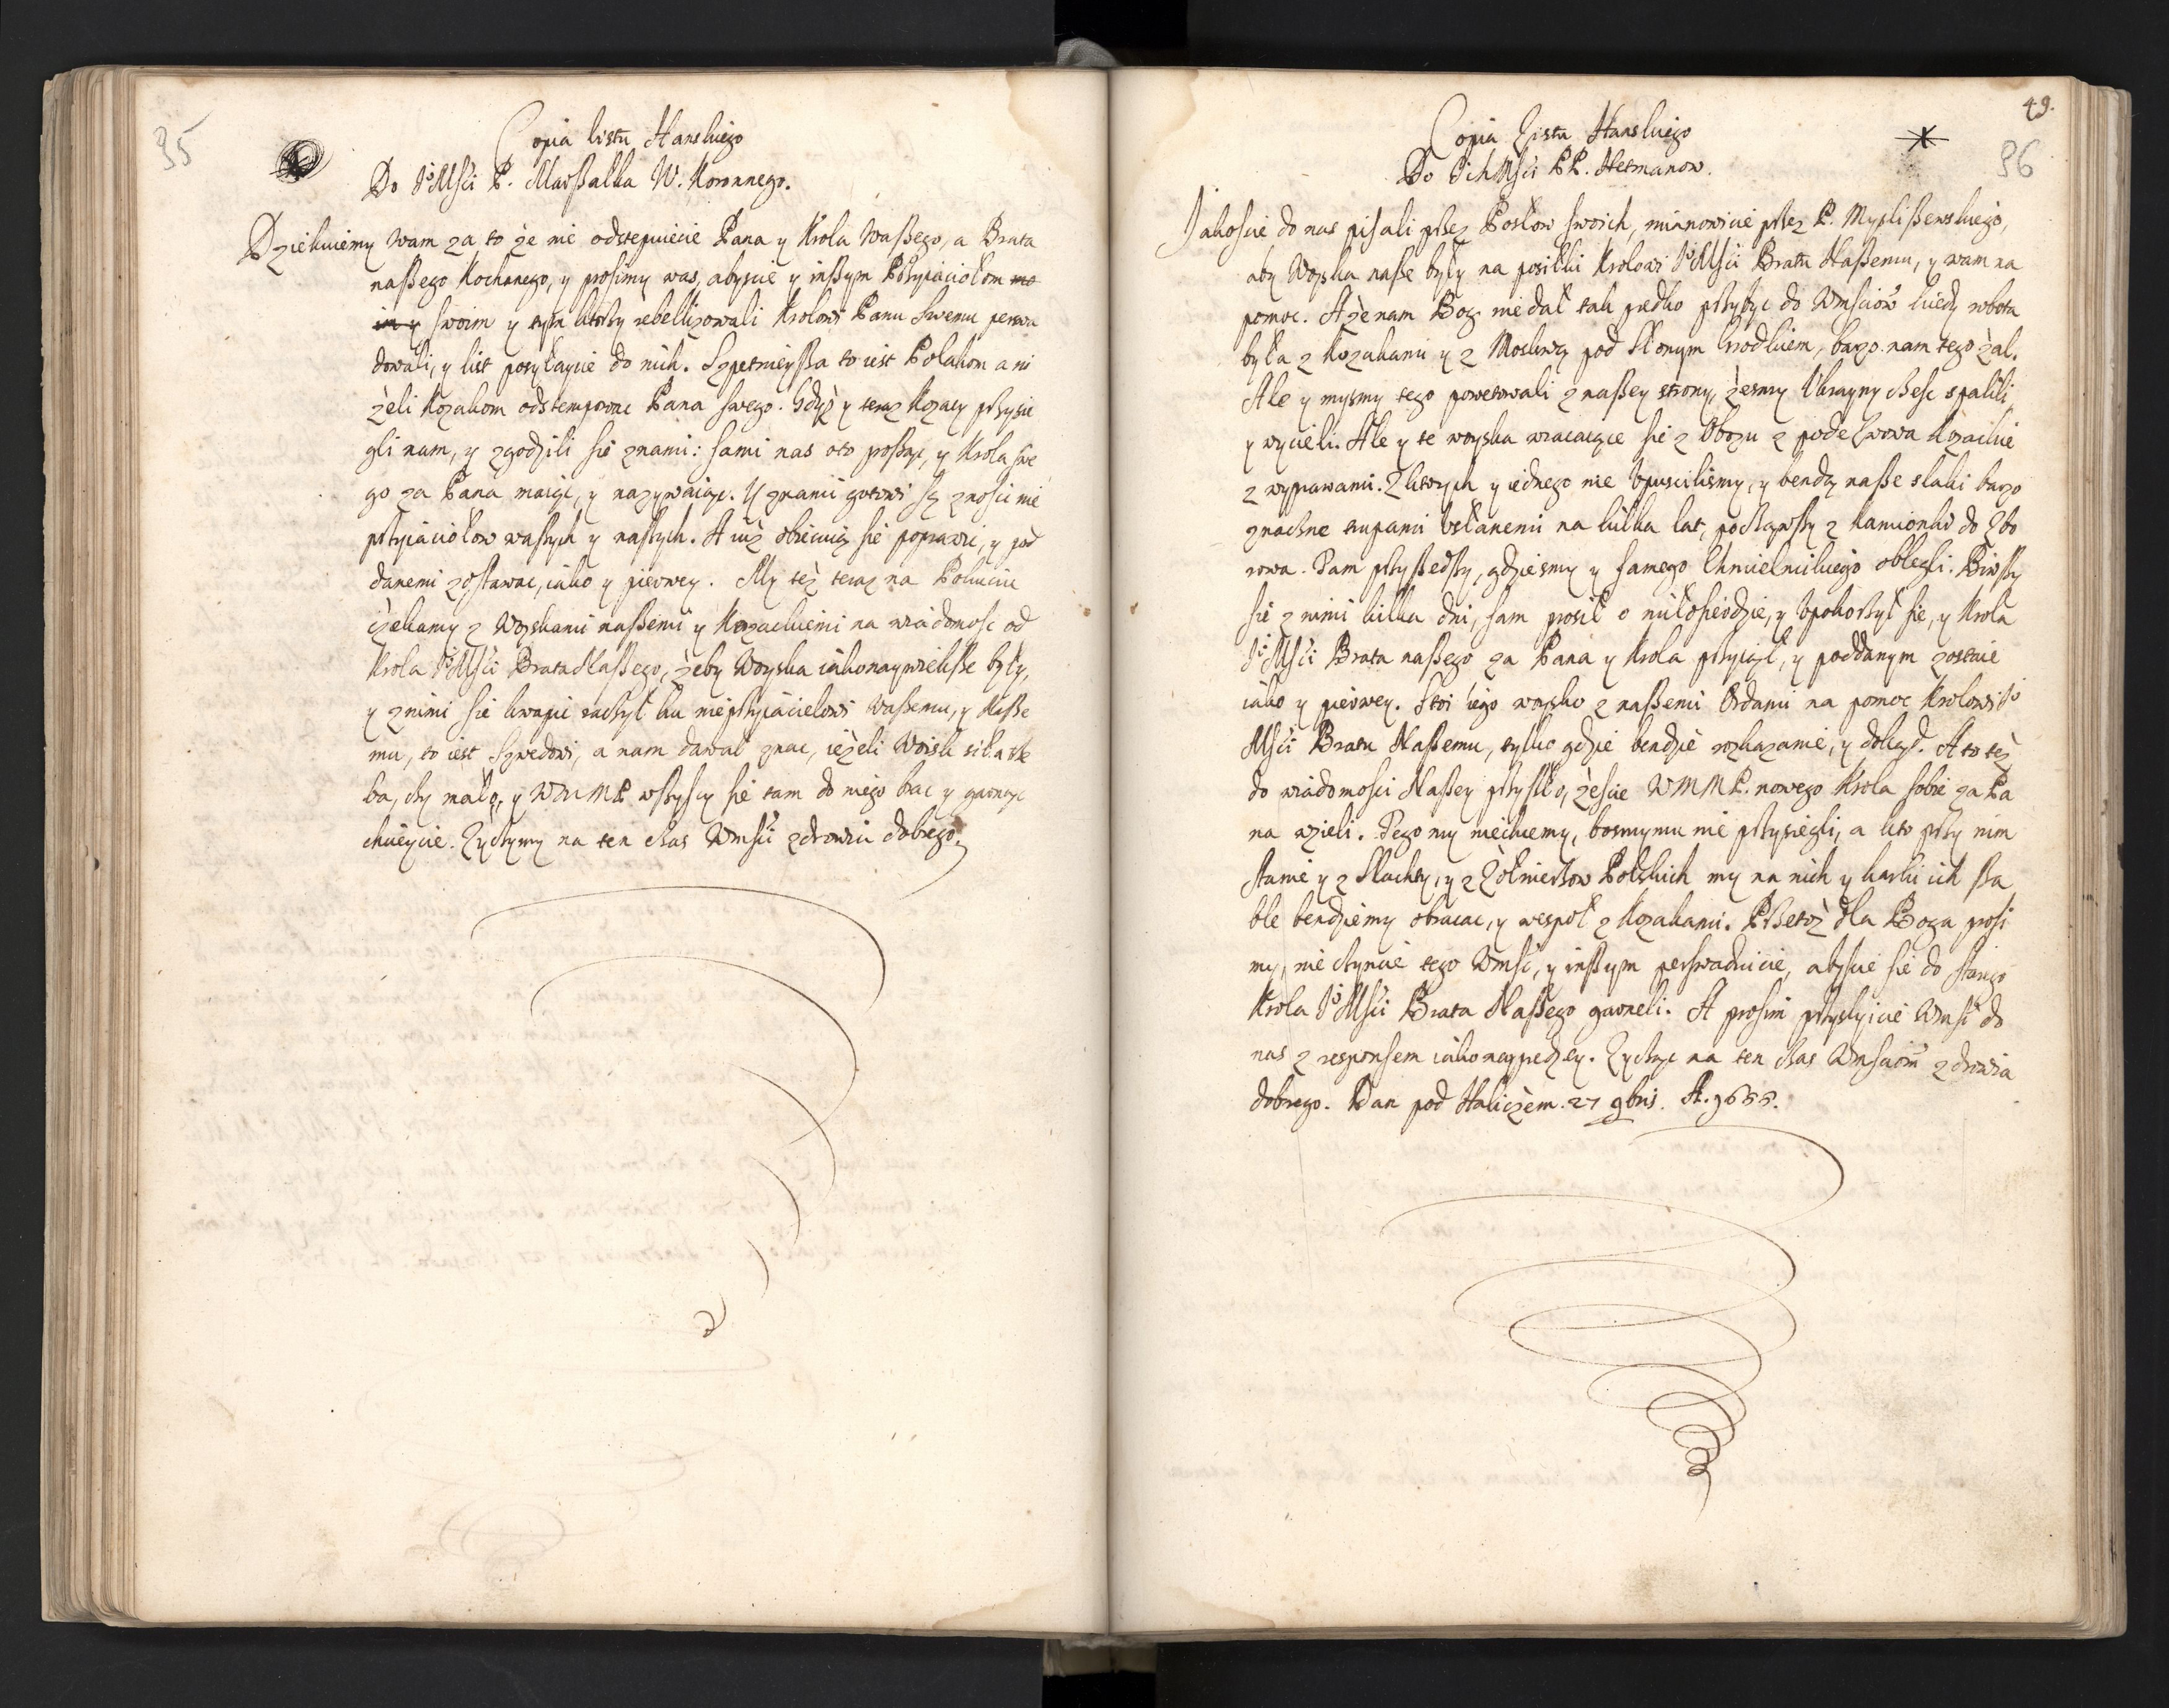 95
Copia listu Hanskiego
Do Jo Mści P. Marßałka W. Koronnego.
Dziekuiemy wam za to że nie odstepuiecie Pana y Krola Waßego, a Brata
naßego Kochanego, y prosimy was, abyscie y inßym Przyiaciołom mo
im y swoim y tym ktorzy rebellizowali Krolowi Panu swemu perswa
dowali, y list posyłaycie do nich. Szpetnieyßa to iest Polakom a ni
żeli Kozakom odstempowac Pana swego. Gdyż y teraz Kozacy przysie
gli nam, y zgodzili sie znami: sami nas oto proßąc, y Krola swe
go za Pana maiąc, y nazywaiąc. Y znami gotowi są znosic nie
przyiaciołow waszych y naszych. A iuż obiecuią sie poprawic, y pod
danemi zostawac, iako y pierwey. My też teraz na Pokuciu
czekamy z Woyskami naßemi y Kozackiemi na wiadomosc od
Krola Jo Mści Brata Naßego, żeby Woyska iakonaywiekße były,
y znimi sie kwapic raczył ku nieprzyiacielowi Waßemu, y Naße
mu, to iest Szwedowi, a nam dawał znac, ieżeli Woisk siła trze
ba, czy mało, y WMMP. wszyscy sie tam do niego brac y garnąc
chcieycie. Zyczymy na ten czas Wmści zdrowia dobrego.
49.
96
Copia Listu Hanskiego
Do Ich Mści PP. Hetmanow.
Jakoscie do nas pisali przez Posłow swoich, mianowicie przez P. Myslißewskiego,
aby Woyska naße były na posiłki Krolowi Jo Mści Bratu Naßemu, y wam na
pomoc. A że nam Bog nie dał tak prędko przybyc do Wmsciow kiedy robota
była z Kozakami y z Moskwą pod Słonym Grodkiem, barzo nam tego żal.
Ale y mysmy tego powetowali z naßey strony, żesmy Ukrayny czesc spalili,
y wycieli. Ale y te woyska wracaiące sie z Obozu z pode Lwowa Kozackie
z wyprawami. Z ktorych y iednego nie Upuscilismy, y bendą naße slaki barzo
znaczne trupami usłanemi na kilka lat, począwszy z Kamionki do Zbo
rowa. Tam przyßedszy, gdziesmy y samego Chmielnickiego oblegli. Biwszy
sie z nimi kilka dni, sam prosił o miłosierdzie, y Upokorzył sie, y Krola
Jo Mści Brata naßego za Pana y Krola przyiął, y poddanym zostaie
iako y pierwey. Stoi iego woysko z naßemi Ordami na pomoc Krolowi Jo
Mści Bratu Naßemu, tylko gdzie bendzie rozkazanie, y dokąd. A to też
do wiadomosci Naßey przyszło, żescie WMMP. nowego Krola sobie za Pa
na wzieli. Tego my niechcemy, bosmy mu nie przysiegli, a kto przy nim
stanie y z Slachty, y z Żołnierzow Polskich my na nich y karki ich ßa
ble bendziemy obracac, y wespoł z Kozakami. Przetoż dla Boga prosi
my, nie czyncie tego Wmsc, y inßym perswaduicie, abyscie sie do starego
Krola Jo Mści Brata Naßego garneli. A prosim przyslyicie Wmsc do
nas z responsem iakonayprędzey. Zycząc na ten czas Wmsciom zdrowia
dobrego. Dan pod Haliczem. 27 9bris. A. 1655.